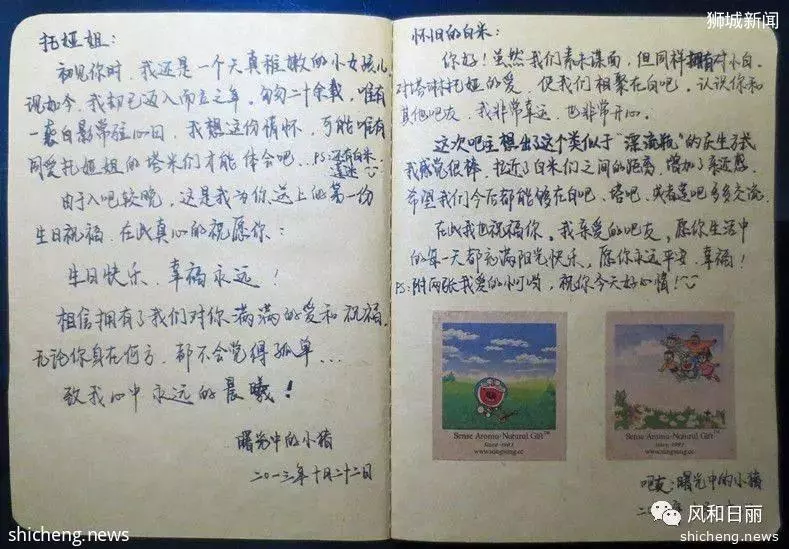 托娅姐：
初见你时，我还是一个天真稚嫩的小女孩儿
现如今，我却已迈入而立之年。匆匆二十余载，唯有
一袭白影常驻心田，我想这份情怀，可能唯有
同爱托娅姐的塔米们才能体会吧…PS：还有白米、
莲迷
由于入吧较晚，这是我为你送上的第一份
生日祝福，在此真心的祝愿你：
生日快乐，幸福永远！
相信拥有了我们对你满满的爱和祝福，
无论你身在何方，都不会觉得孤单…
致我心中永远的晨曦！
曙光中的小猪
二〇一三年十月二十二日
怀旧的白米：
你好！虽然我们素未谋面，但同样拥有对小白。
对塔琳托娅的爱，使我们相聚在白吧，认识你和
其他吧友，我非常幸运，也非常开心。
这次吧主想出了这个类似于“漂流瓶”的庆生方式
我感觉很棒，拉近了白米们之间的距离，增加了亲近感
希望我们今后都能够在白吧、塔吧，或者莲吧多多交流。
在此我也祝福你，我亲爱的吧友，愿你生活中
的每一天都充满阳光快乐，愿你永远平安、幸福！
PS：附两张我爱的小叮哟，祝你今天好心情！
Sense Aroma·Natural Gift™
Since 1981
www.sungsung.cc
Sense Aroma·Natural Gift™
Since 1981
www.sungsung.cc
吧友：曙光中的小猪
狮城新闻
shicheng.news
风和日丽
shicheng.news